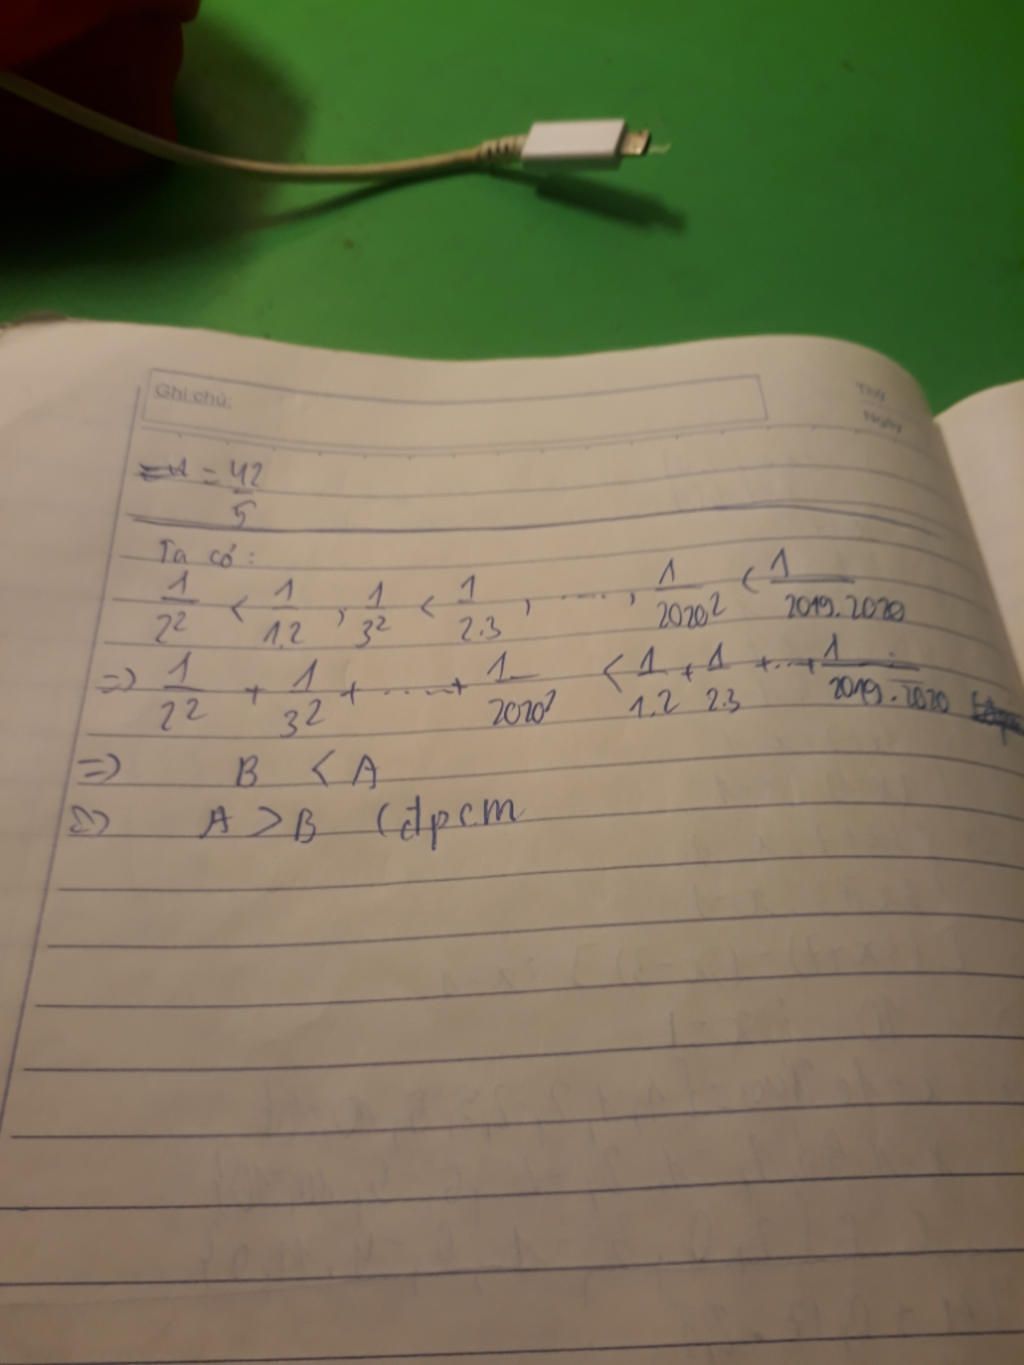 Ghi chú:
Thứ
Ngày
= 42/5
Ta có:
1/2² < 1/1.2 , 1/3² < 1/2.3 , ....., 1/2020² < 1/2019.2020
=> 1/2² + 1/3² + .....+ 1/2020² < 1/1.2 + 1/2.3 +...+ 1/2019.2020
=> B < A
=> A > B (đpcm